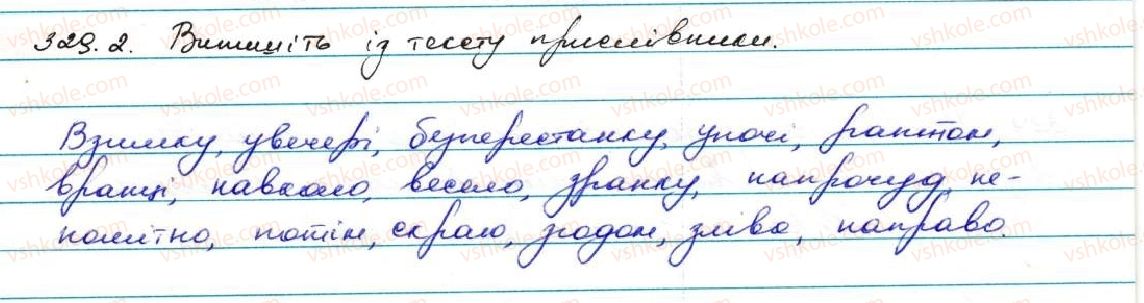 329.2. Випишіть із тексту прислівники.
Взимку, увечері, безперестанку, уночі, раптом,
вранці, навколо, весело, зранку, напрочуд, не-
помітно, потім, скраю, згодом, зліва, направо.